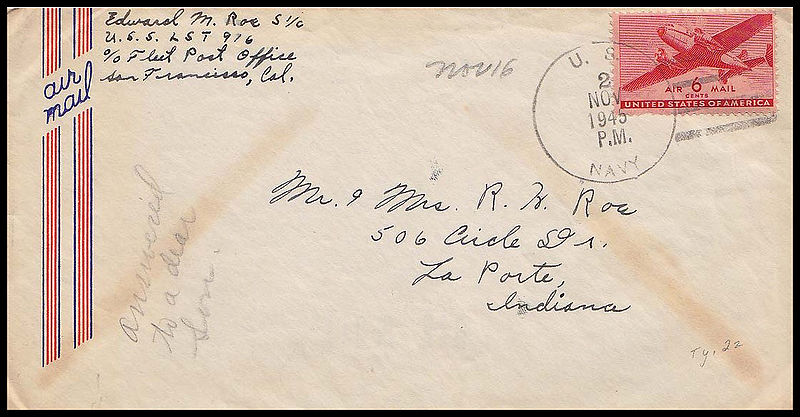 Edward M. Roe S 1/c
U.S.S. LST 976
c/o Fleet Post Office
San Francisco, Cal.
air
mail
Nov 16
U. S.
2
NOV
1945
P.M.
NAVY
AIR 6 MAIL
CENTS
UNITED STATES OF AMERICA
Mr. & Mrs. R. H. Roe
506 Circle Dr.
La Porte,
Indiana
answered
to a dear
Son.
Ty. 22